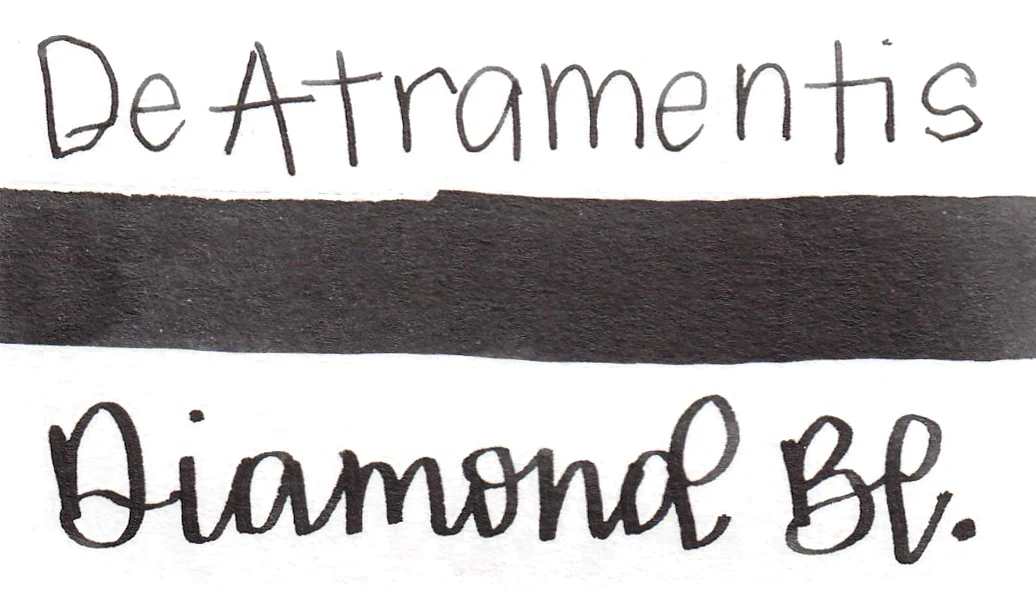 De Atramentis
Diamond Bl.